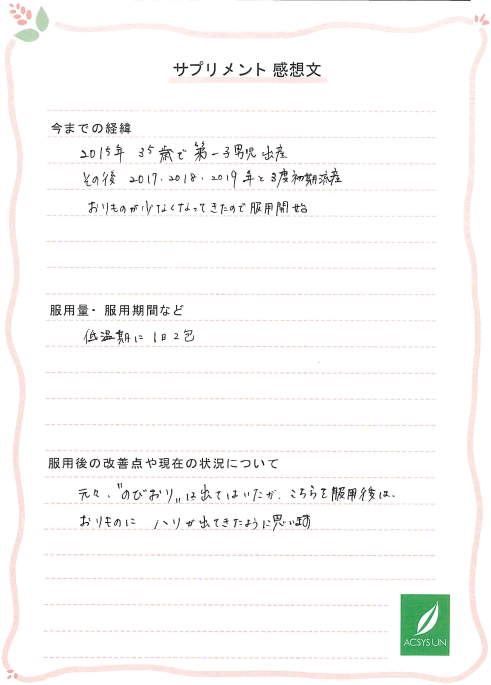 サプリメント 感想文
今までの経緯
2015年 35歳で第一子男児出産
その後 2017・2018・2019年と3度初期流産
おりものが少なくなってきたので服用開始
服用量・服用期間など
低温期に1日2包
服用後の改善点や現在の状況について
元々、"のびおり"は出てはいたが、こちらを服用後は、
おりものに ハリが出てきたように思います
ACSYS UN